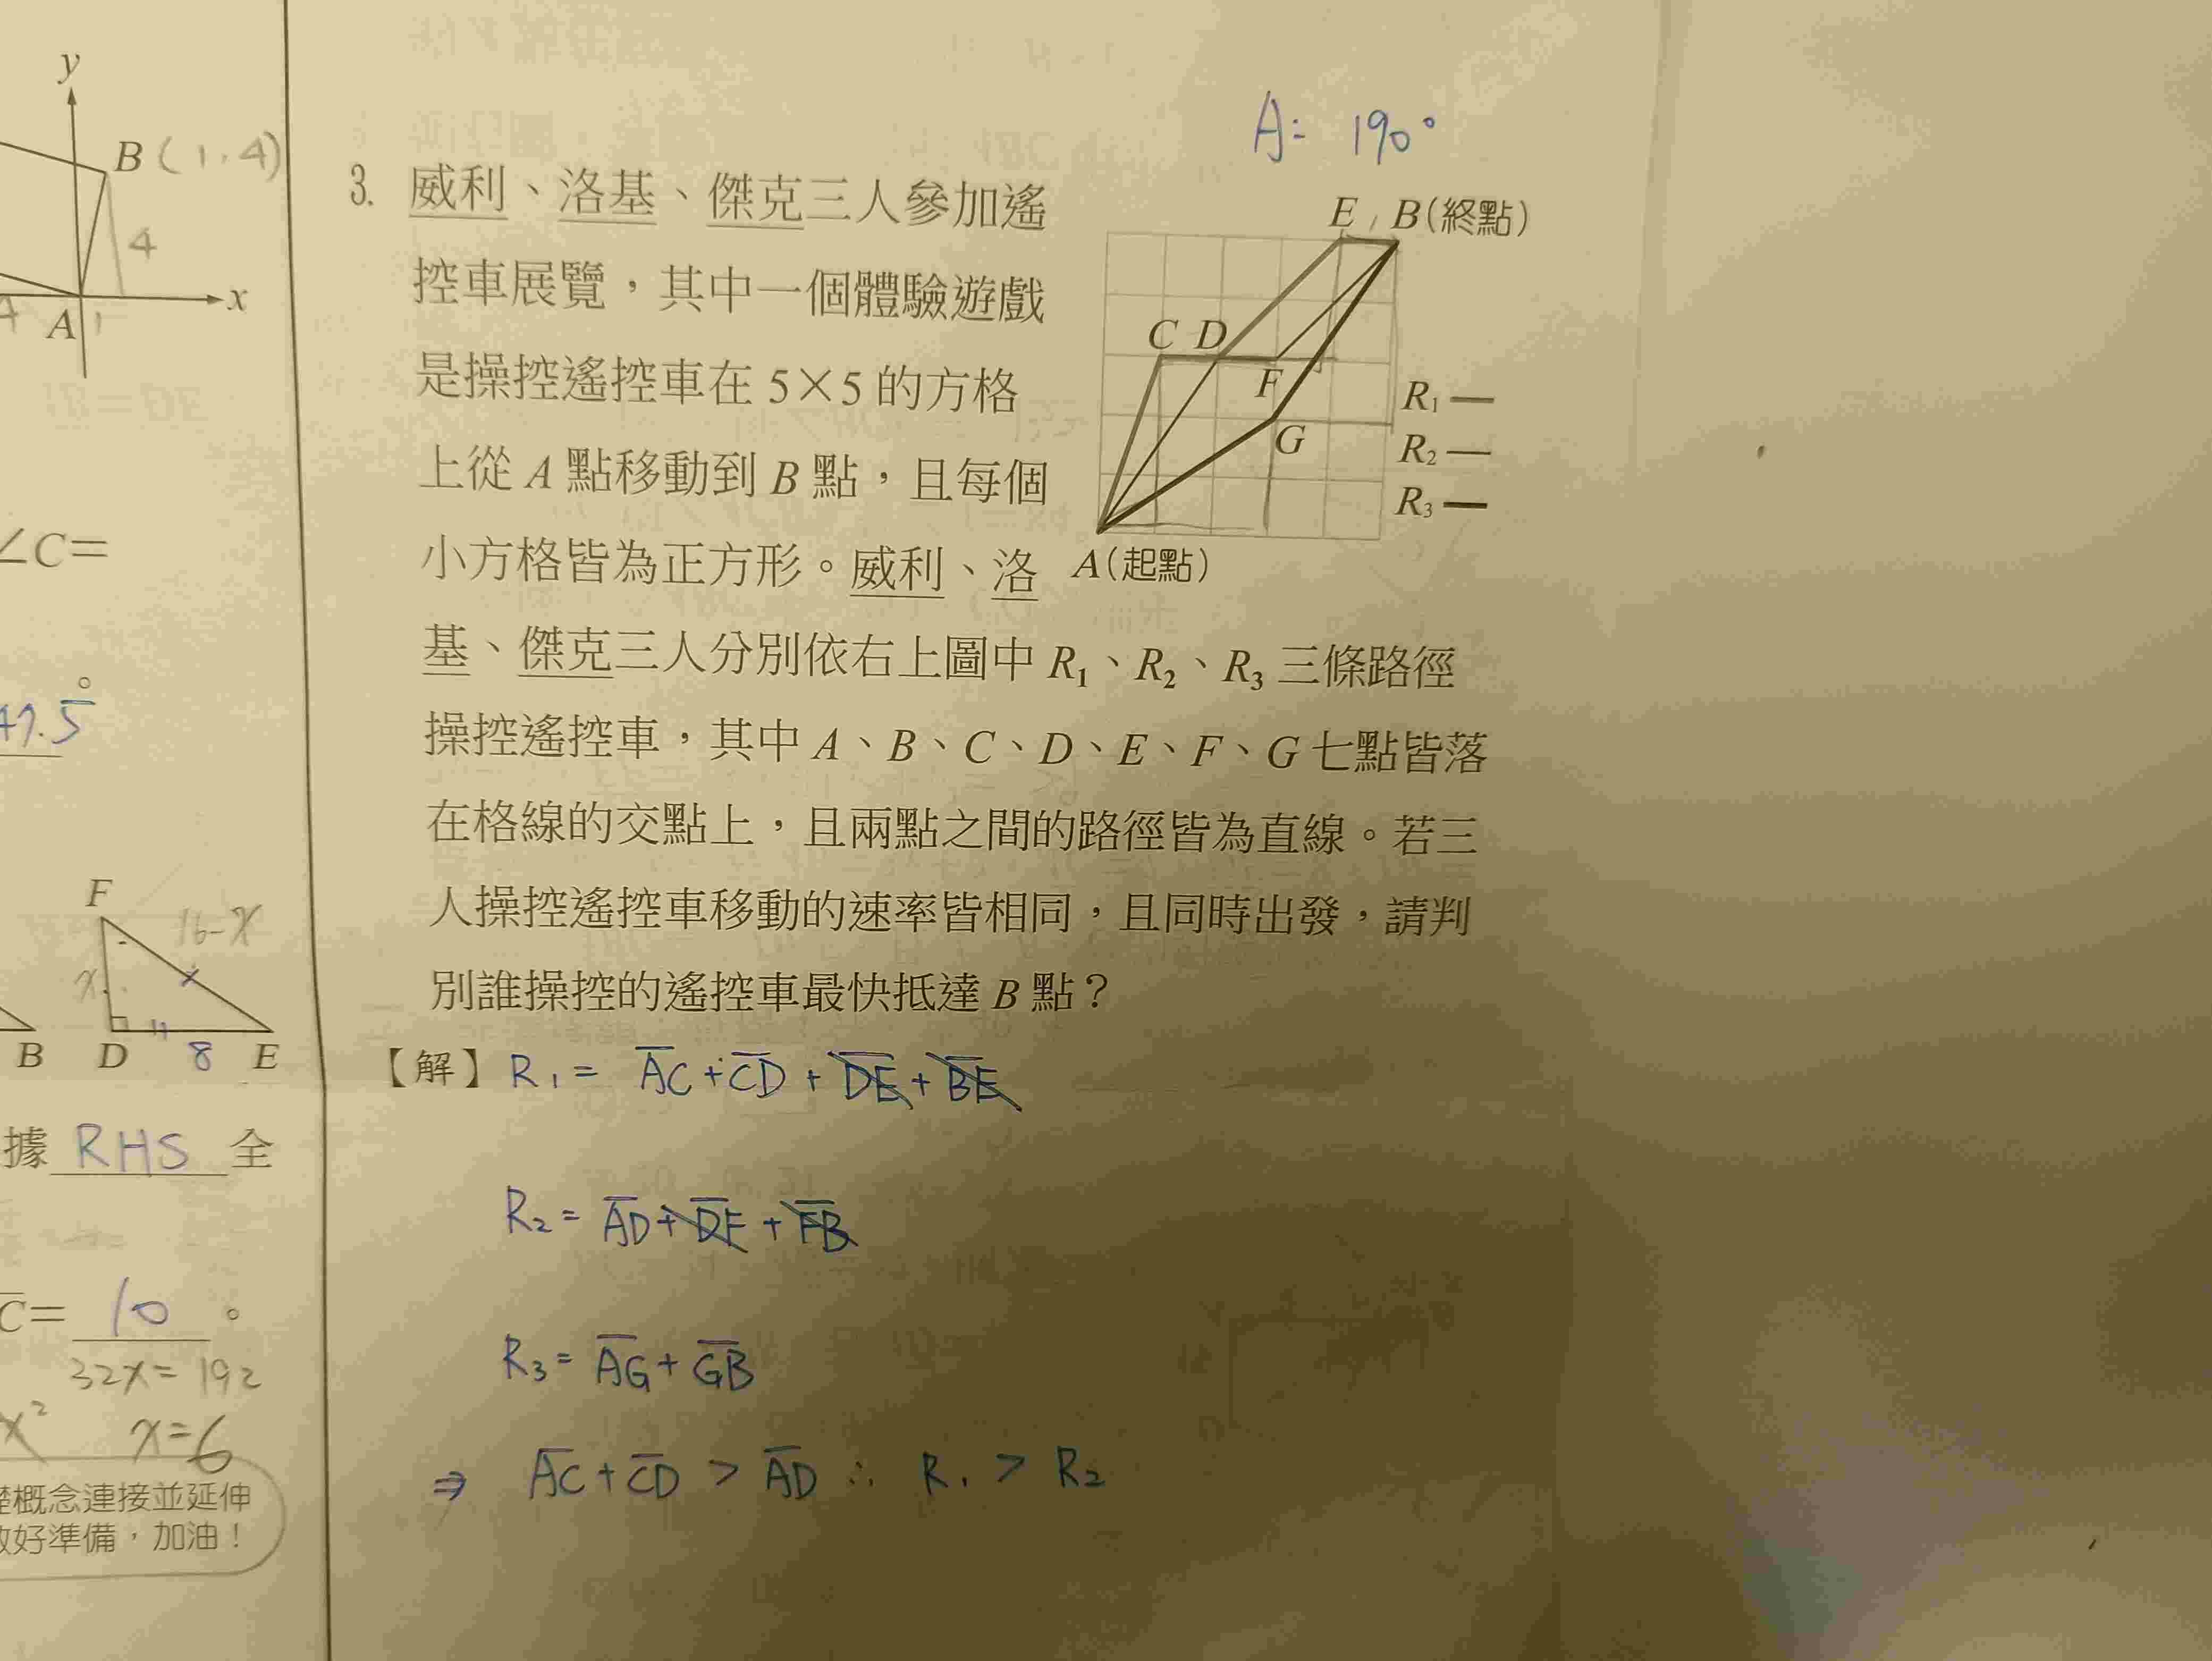 y
B (1,4)
4
x
A 1
∠C=
47.5°
F
16-x
x
B D 8 E
據 RHS 全
C= 10 。
32x=192
x² x=6
礎概念連接並延伸
做好準備，加油！
A= 190°
3. 威利、洛基、傑克三人參加遙
控車展覽，其中一個體驗遊戲
是操控遙控車在 5×5 的方格
上從 A 點移動到 B 點，且每個
小方格皆為正方形。威利、洛
基、傑克三人分別依右上圖中 R₁、R₂、R₃ 三條路徑
操控遙控車，其中 A、B、C、D、E、F、G 七點皆落
在格線的交點上，且兩點之間的路徑皆為直線。若三
人操控遙控車移動的速率皆相同，且同時出發，請判
別誰操控的遙控車最快抵達 B 點？
E B(終點)
C D
F
G
R₁
R₂
R₃
A(起點)
【解】R₁= AC+CD+DE+BE
R₂= AD+DF+FB
R₃= AG+GB
⇒ AC+CD > AD ∴ R₁ > R₂